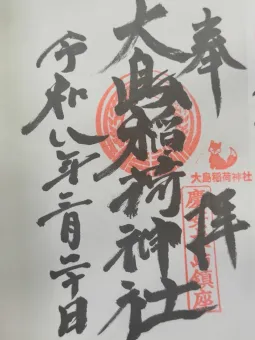 奉拝
大島稲荷神社
大島稲荷神社
令和八年二月二十日